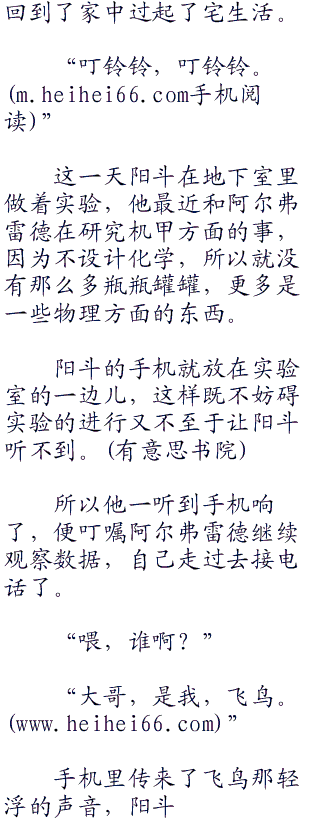 回到了家中过起了宅生活。
“叮铃铃，叮铃铃。
(m.heihei66.com手机阅
读)”
这一天阳斗在地下室里
做着实验，他最近和阿尔弗
雷德在研究机甲方面的事，
因为不设计化学，所以就没
有那么多瓶瓶罐罐，更多是
一些物理方面的东西。
阳斗的手机就放在实验
室的一边儿，这样既不妨碍
实验的进行又不至于让阳斗
听不到。(有意思书院)
所以他一听到手机响
了，便叮嘱阿尔弗雷德继续
观察数据，自己走过去接电
话了。
“喂，谁啊？”
“大哥，是我，飞鸟。
(www.heihei66.com)”
手机里传来了飞鸟那轻
浮的声音，阳斗